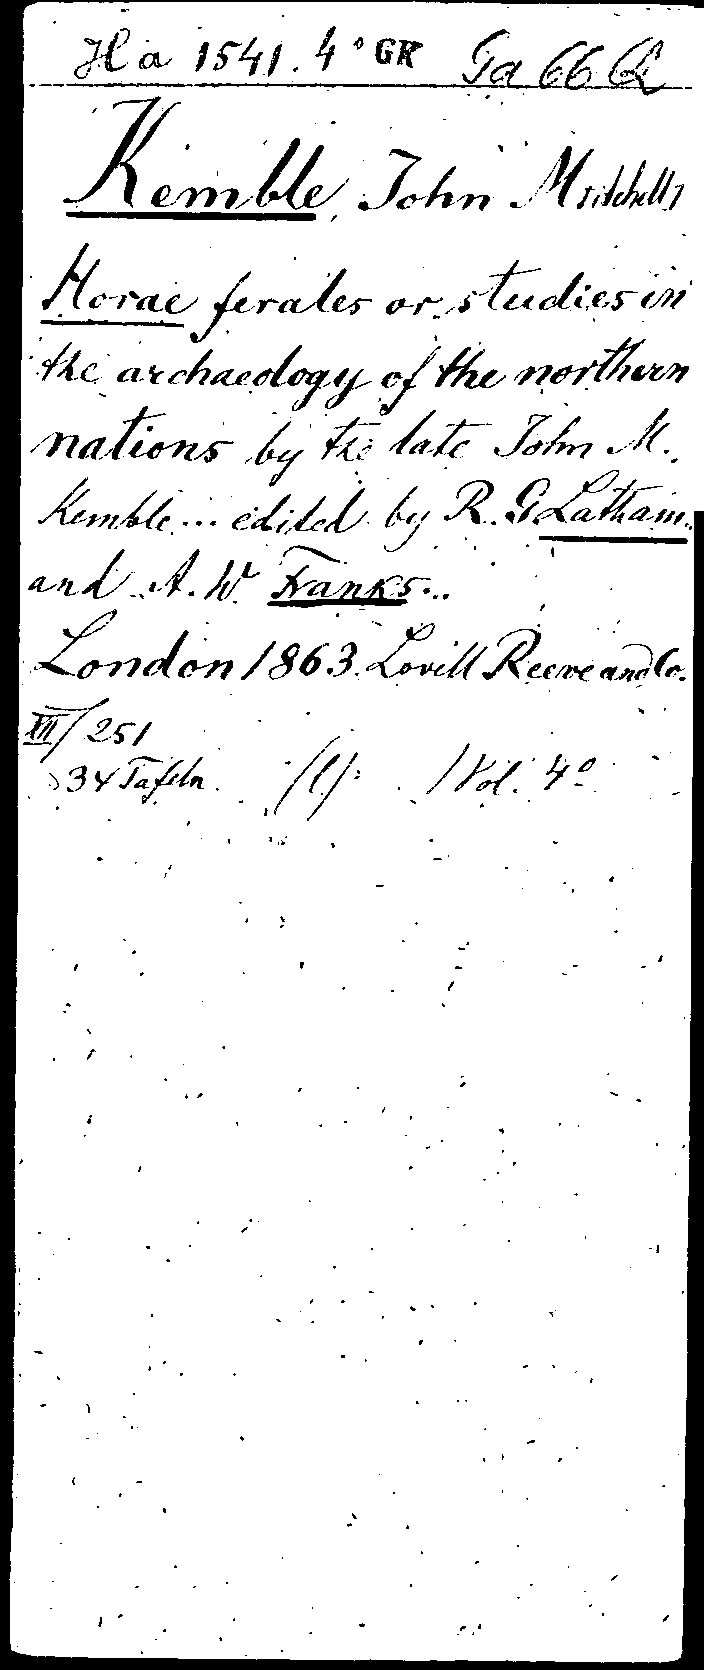 Ha 1541. 4° GK Ga 66 R
Kemble, John M[itchell]
Horae ferales or studies in
the archaeology of the northern
nations by the late John M.
Kemble... edited by R. G Latham
and A. W. Franks...
London 1863. Lovell Reeve and Co.
XII/251
34 Tafeln. /(l): 1 Vol. 4°